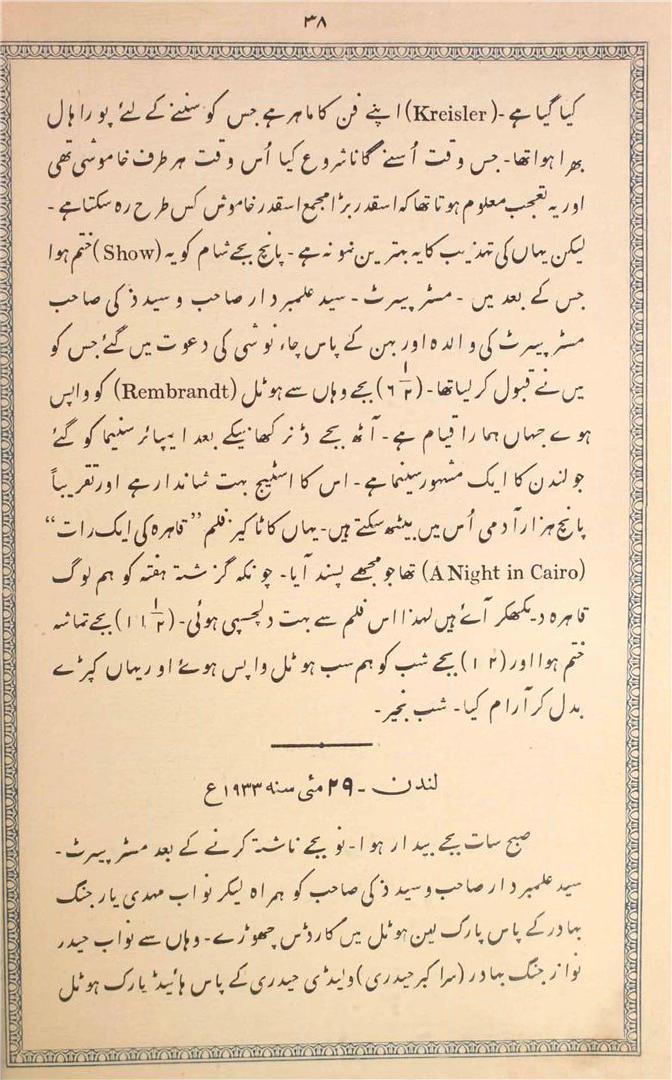 ۳۸
کیا گیا ہے -(Kreisler) اپنے فن کا ماہر ہے جس کو سننے کے لئے پورا ہال
بھرا ہوا تھا- جس وقت اُسنے گانا شروع کیا اُس وقت ہر طرف خاموشی تھی
اور یہ تعجب معلوم ہوتا تھا کہ اسقدر بڑا مجمع اسقدر خاموش کس طرح رہ سکتا ہے -
لیکن یہاں کی تہذیب کا یہ بہترین نمونہ ہے - پانچ بجے شام کو یہ (Show) ختم ہوا
جس کے بعد میں - مسٹر پیسرٹ - سید علمبردار صاحب و سید ذکی صاحب
مسٹر پیسرٹ کی والدہ اور بہن کے پاس چاء نوشی کی دعوت میں گئے جس کو
میں نے قبول کر لیا تھا- (۶ ۱/۲) بجے وہاں سے ہوٹل (Rembrandt) کو واپس
ہوے جہاں ہمارا قیام ہے - آٹھ بجے ڈنر کھانیکے بعد ایمپائر سنیما کو گئے
جو لندن کا ایک مشہور سینما ہے - اس کا اسٹیج بہت شاندار ہے اور تقریباً
پانچ ہزار آدمی اُس میں بیٹھ سکتے ہیں- یہاں کا ٹاکیز فلم ”قاہرہ کی ایک رات“
(A Night in Cairo) تھا جو مجھے پسند آیا- چونکہ گزشتہ ہفتہ کو ہم لوگ
قاہرہ دیکھکر آے ہیں لہذا اس فلم سے بہت دلچسپی ہوئی- (۱۱ ۱/۲) بجے تماشہ
ختم ہوا اور (۱۲) بجے شب کو ہم سب ہوٹل واپس ہوۓ اور یہاں کپڑے
بدل کر آرام کیا- شب بخیر-
لندن - ۲۹ مئی سنه ۱۹۳۳ع
صبح سات بجے بیدار ہوا- نو بجے ناشتہ کرنے کے بعد مسٹر پیسرٹ -
سید علمبردار صاحب و سید ذکی صاحب کو ہمراہ لیکر نواب مہدی یار جنگ
بہادر کے پاس پارک لین ہوٹل میں کارڈس چھوڑے- وہاں سے نواب حیدر
نواز جنگ بہادر (سر اکبر حیدری) ولیڈی حیدری کے پاس ہائیڈ پارک ہوٹل